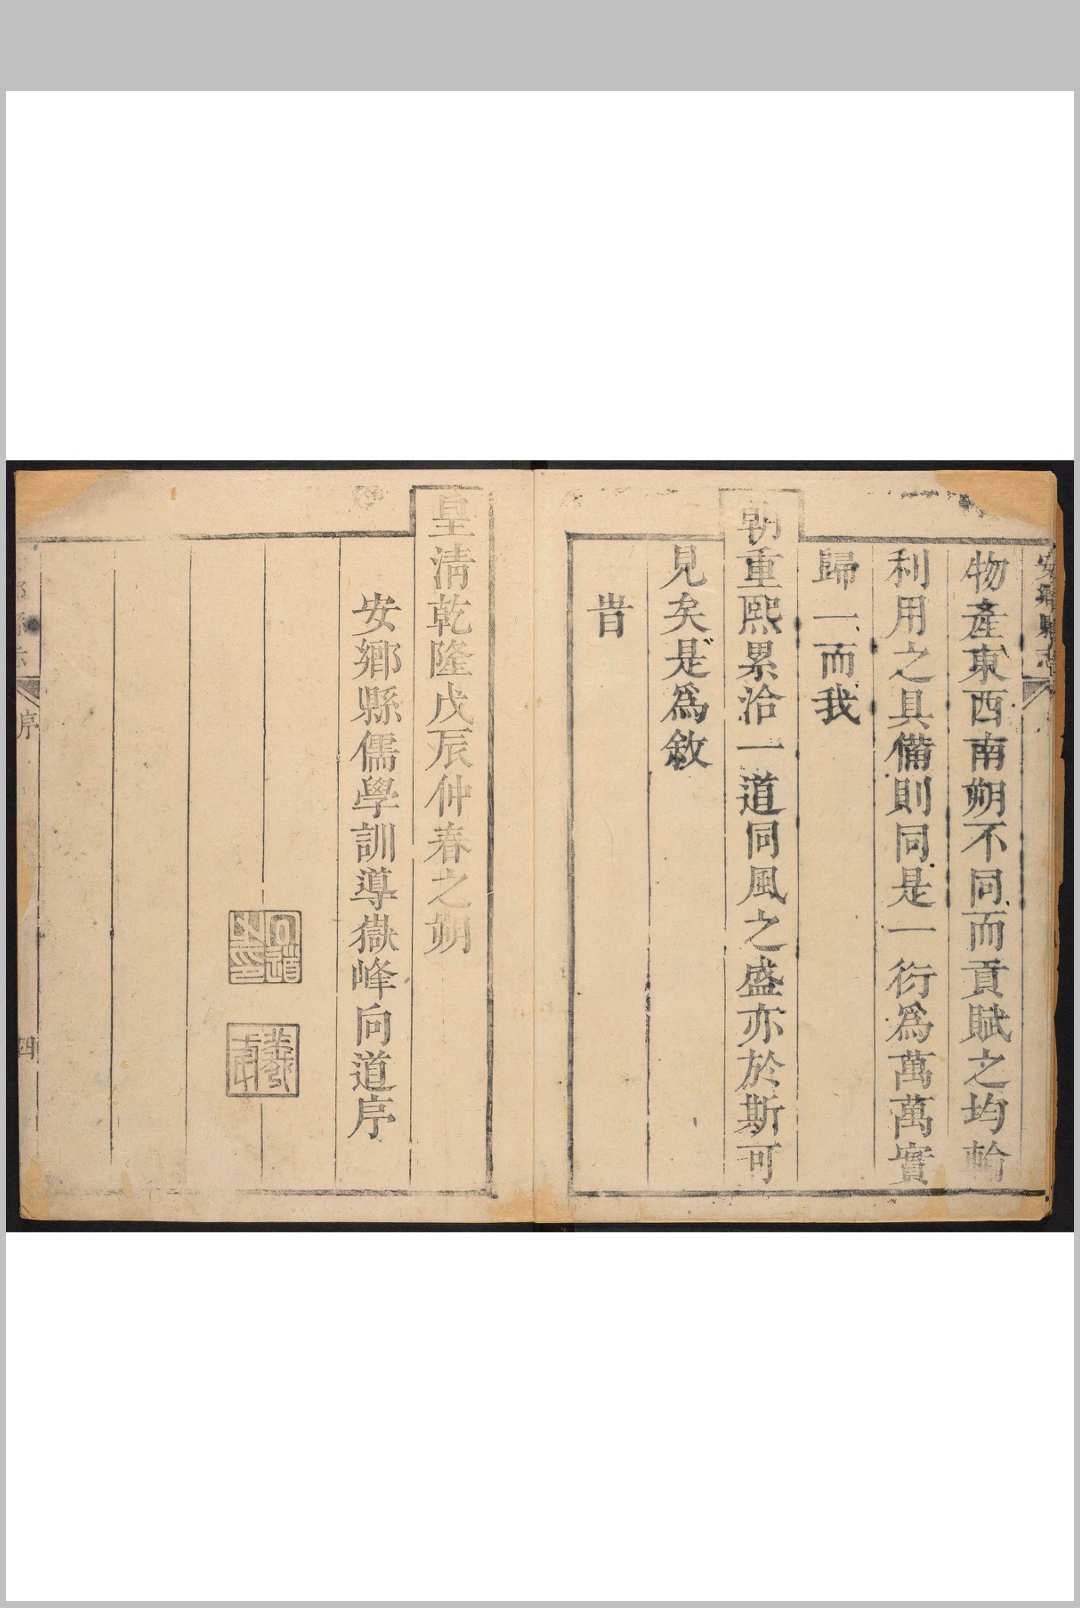 安鄉縣志
物產東西南朔不同而貢賦之均輸
利用之具備則同是一衍爲萬萬實
歸一而我
朝重熙累洽一道同風之盛亦於斯可
見矣是爲敘
旹
皇清乾隆戊辰仲春之朔
安鄉縣儒學訓導嶽峰向道序
序
四